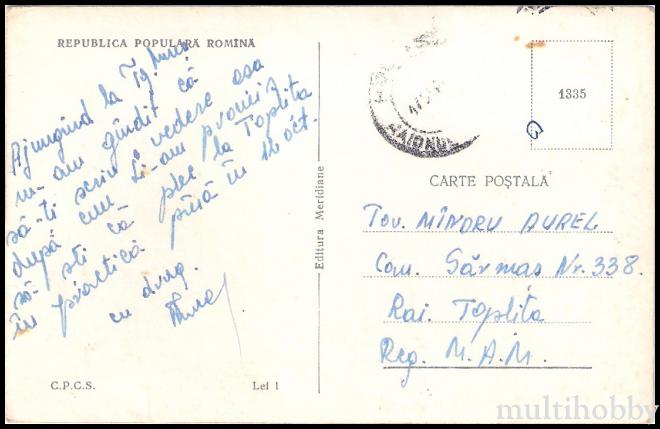 REPUBLICA POPULARĂ ROMÎNĂ
Ajungînd la Tg. Mureș
m-am gîndit că
să-ți scriu o vedere așa
după cum ți-am promis?
să știi că plec la Toplița
în practică pînă în 12 oct.
cu drag.
C.P.C.S.
Lei 1
Editura Meridiane
RAIONUL
1335
CARTE POȘTALĂ
Tov. MÎNDRU AUREL
Com. Sărmaș Nr. 338.
Rai. Toplița
Reg. M.A.M.
multihobby